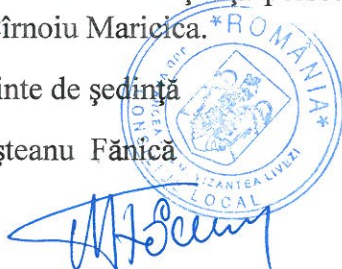 îrnoiu Maricica.
inte de ședință
șteanu Fănică
*ROMÂNIA*
VIZANTEA LIVEZI
LOCAL